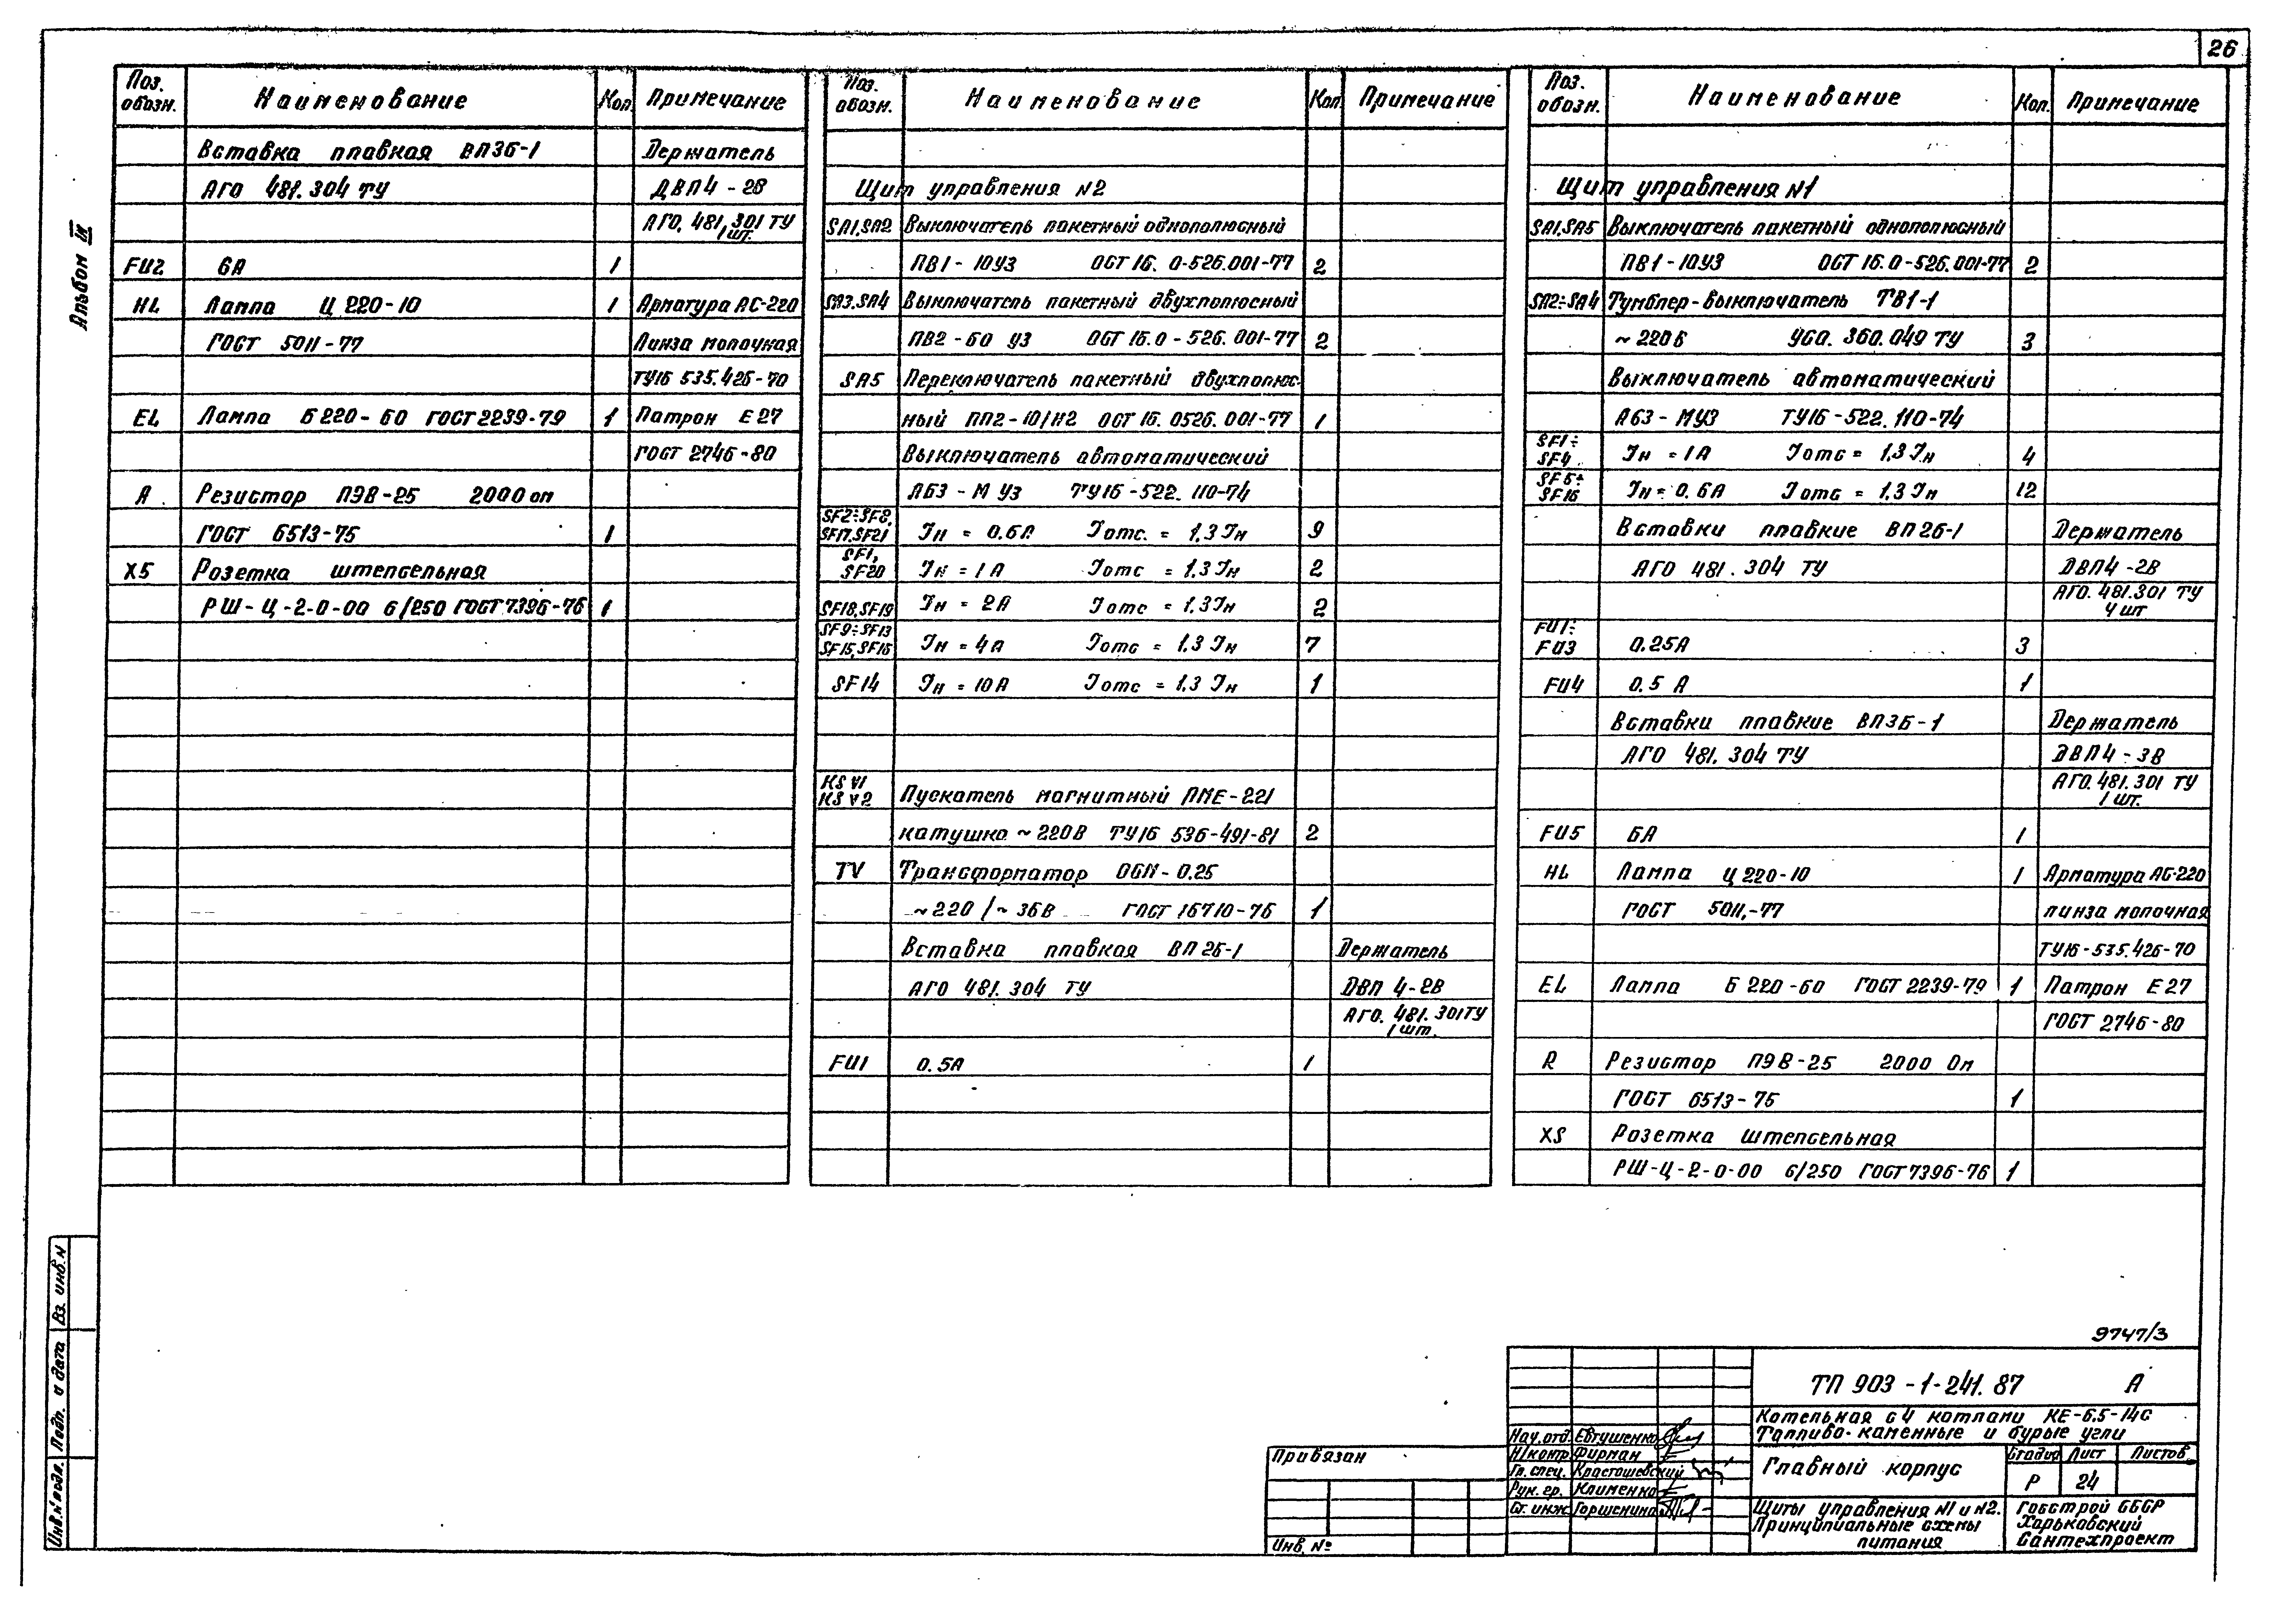 26
Альбом IX
Поз. обозн. Наименование Кол. Примечание
Вставка плавкая ВП3Б-1 Держатель
АГО 481.304 ТУ ДВП4-2В
АГО. 481.301 ТУ
1 шт.
FU2 6А 1
HL Лампа Ц 220-10 1 Арматура АС-220
ГОСТ 5011-77 Линза молочная
ТУ16 535.426-70
EL Лампа Б 220-60 ГОСТ 2239-79 1 Патрон Е27
ГОСТ 2746-80
R Резистор ПЭВ-25 2000 ом
ГОСТ 6513-75 1
XS Розетка штепсельная
РШ-Ц-2-0-00 6/250 ГОСТ 7396-76 1
Поз. обозн. Наименование Кол. Примечание
Щит управления N2
SA1,SA2 Выключатель пакетный однополюсный
ПВ1-10У3 ОСТ 16. 0-526.001-77 2
SA3.SA4 Выключатель пакетный двухполюсный
ПВ2-60 У3 ОСТ 16.0-526.001-77 2
SA5 Переключатель пакетный двухполюс-
ный ПП2-10/Н2 ОСТ 16. 0526.001-77 1
Выключатель автоматический
А63-М У3 ТУ16-522. 110-74
SF2÷SF8,
SF17.SF21 Iн = 0.6А Iотс. = 1,3 Iн 9
SF1,
SF20 Iн = 1А Iотс = 1,3 Iн 2
SF18,SF19 Iн = 2А Iотс = 1,3 Iн 2
SF9÷SF13
SF15,SF16 Iн = 4А Iотс = 1,3 Iн 7
SF14 Iн = 10А Iотс = 1,3 Iн 1
KS V1
KS V2 Пускатель магнитный ПМЕ-221
катушка ~220В ТУ16 536-491-81 2
TV Трансформатор ОСМ-0.25
~220/~36В ГОСТ 16710-76 1
Вставка плавкая ВП2Б-1 Держатель
АГО 481.304 ТУ ДВП 4-2В
АГО. 481.301ТУ
1 шт.
FU1 0.5А 1
Поз. обозн. Наименование Кол. Примечание
Щит управления N1
SA1,SA5 Выключатель пакетный однополюсный
ПВ1-10У3 ОСТ 16.0-526.001-77 2
SA2÷SA4 Тумблер-выключатель ТВ1-1
~220В УСО. 360.049 ТУ 3
Выключатель автоматический
А63-МУ3 ТУ16-522.110-74
SF1÷
SF4 Iн = 1А Iотс = 1,3 Iн 4
SF5÷
SF16 Iн = 0.6А Iотс = 1,3 Iн 12
Вставки плавкие ВП2Б-1 Держатель
АГО 481.304 ТУ ДВП4-2В
АГО. 481.301 ТУ
4 шт
FU1÷
FU3 0.25А 3
FU4 0.5 А 1
Вставки плавкие ВП3Б-1 Держатель
АГО 481.304 ТУ ДВП4-3В
АГО. 481.301 ТУ
1 шт.
FU5 6А 1
HL Лампа Ц 220-10 1 Арматура АС-220
ГОСТ 5011.-77 линза молочная
ТУ16-535.426-70
EL Лампа Б 220-60 ГОСТ 2239-79 1 Патрон Е27
ГОСТ 2746-80
R Резистор ПЭВ-25 2000 Ом
ГОСТ 6513-75 1
XS Розетка штепсельная
РШ-Ц-2-0-00 6/250 ГОСТ 7396-76 1
Инв.N подл. Подп. и дата Вз. инв. N
9747/3
ТП 903-1-241.87 А
Котельная с 4 котлами КЕ-6.5-14С
Топливо-каменные и бурые угли
Нач. отд. Евтушенко
Н/контр Фирман
Гл. спец. Красташевский
Рук. гр. Клименко
Ст. инж. Горшенина
Главный корпус
Стадия Лист Листов
Р 24
Щиты управления N1 и N2.
Принципиальные схемы
питания
Госстрой СССР
Харьковский
Сантехпроект
Привязан
Инв. №